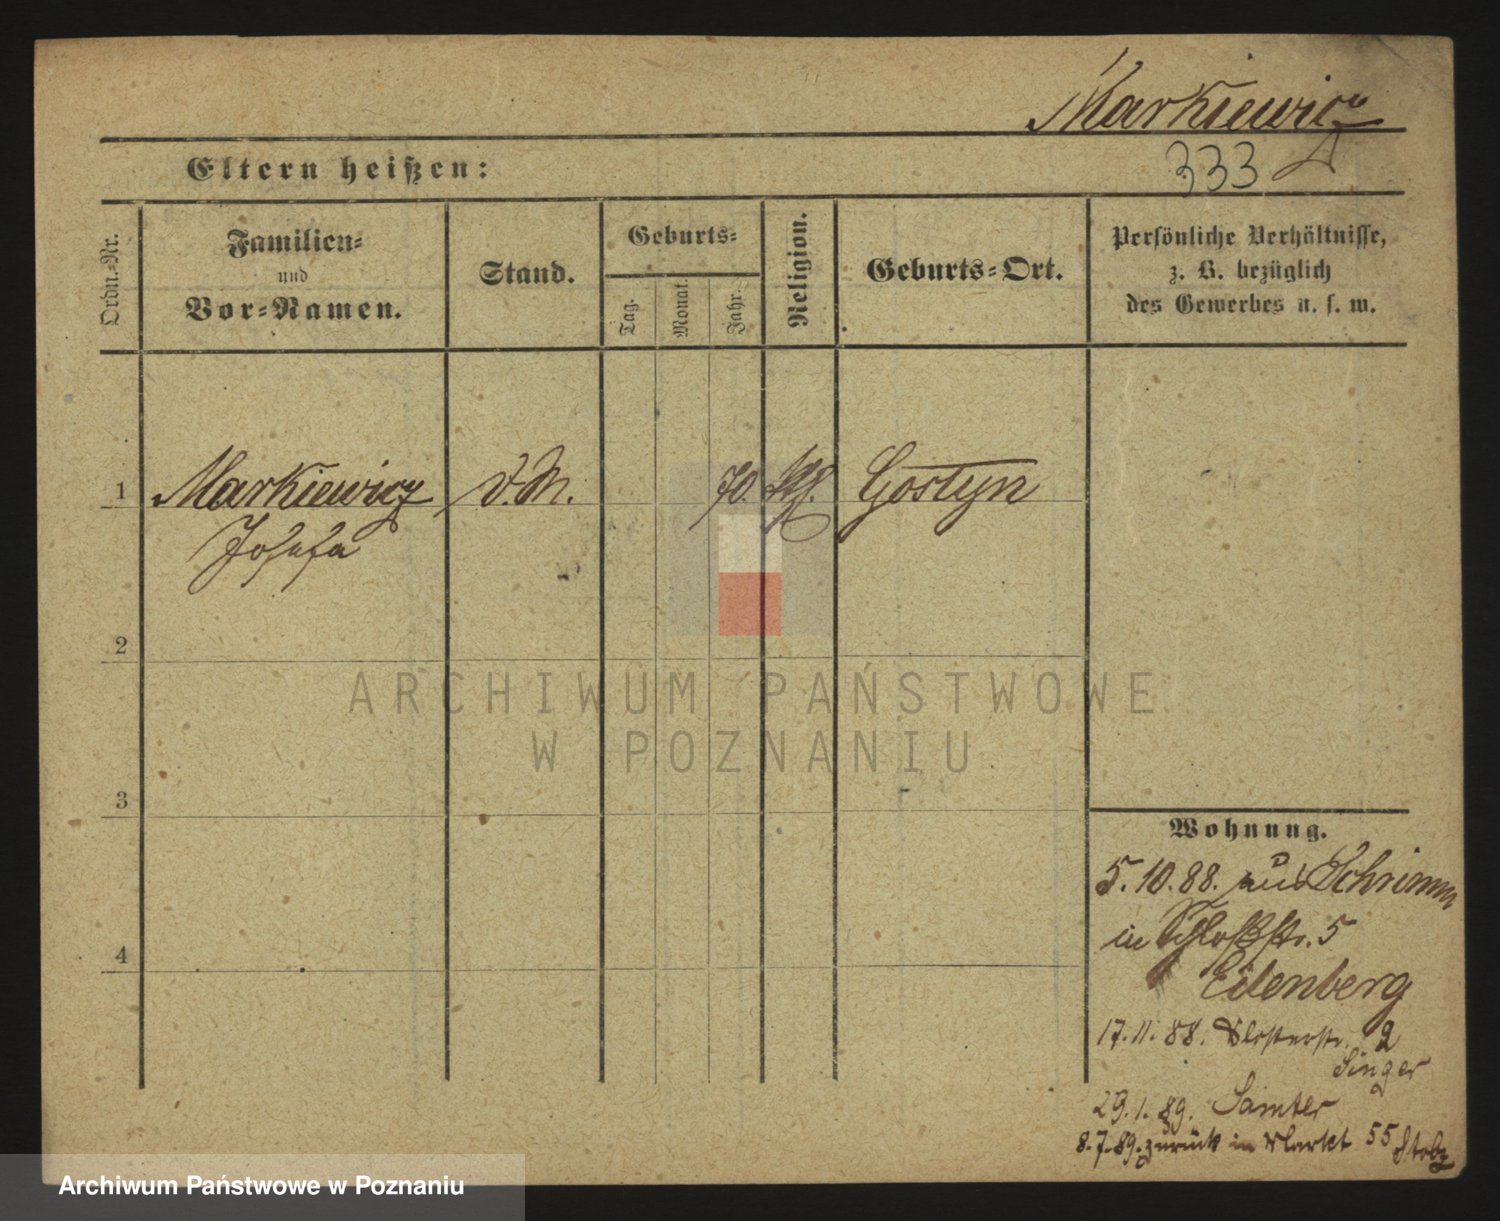 Markiewicz
333
Eltern heißen:
Ordn.-Nr.
Familien-
und
Vor-Namen.
Stand.
Geburts-
Tag.
Monat.
Jahr.
Religion.
Geburts-Ort.
Persönliche Verhältnisse,
z. B. bezüglich
des Gewerbes u. s. w.
1 Markiewicz d.M. 70. kth. Gostyn
Josefa
2
ARCHIWUM PAŃSTWOWE
W POZNANIU
3
Wohnung.
5.10.88. aus Schrimm
in Schloßstr. 5
Eilenberg
4
17.11.88. Klosterstr. 2
Singer
29.1.89. Samter
8.7.89. zurück in Markt 55
Archiwum Państwowe w Poznaniu